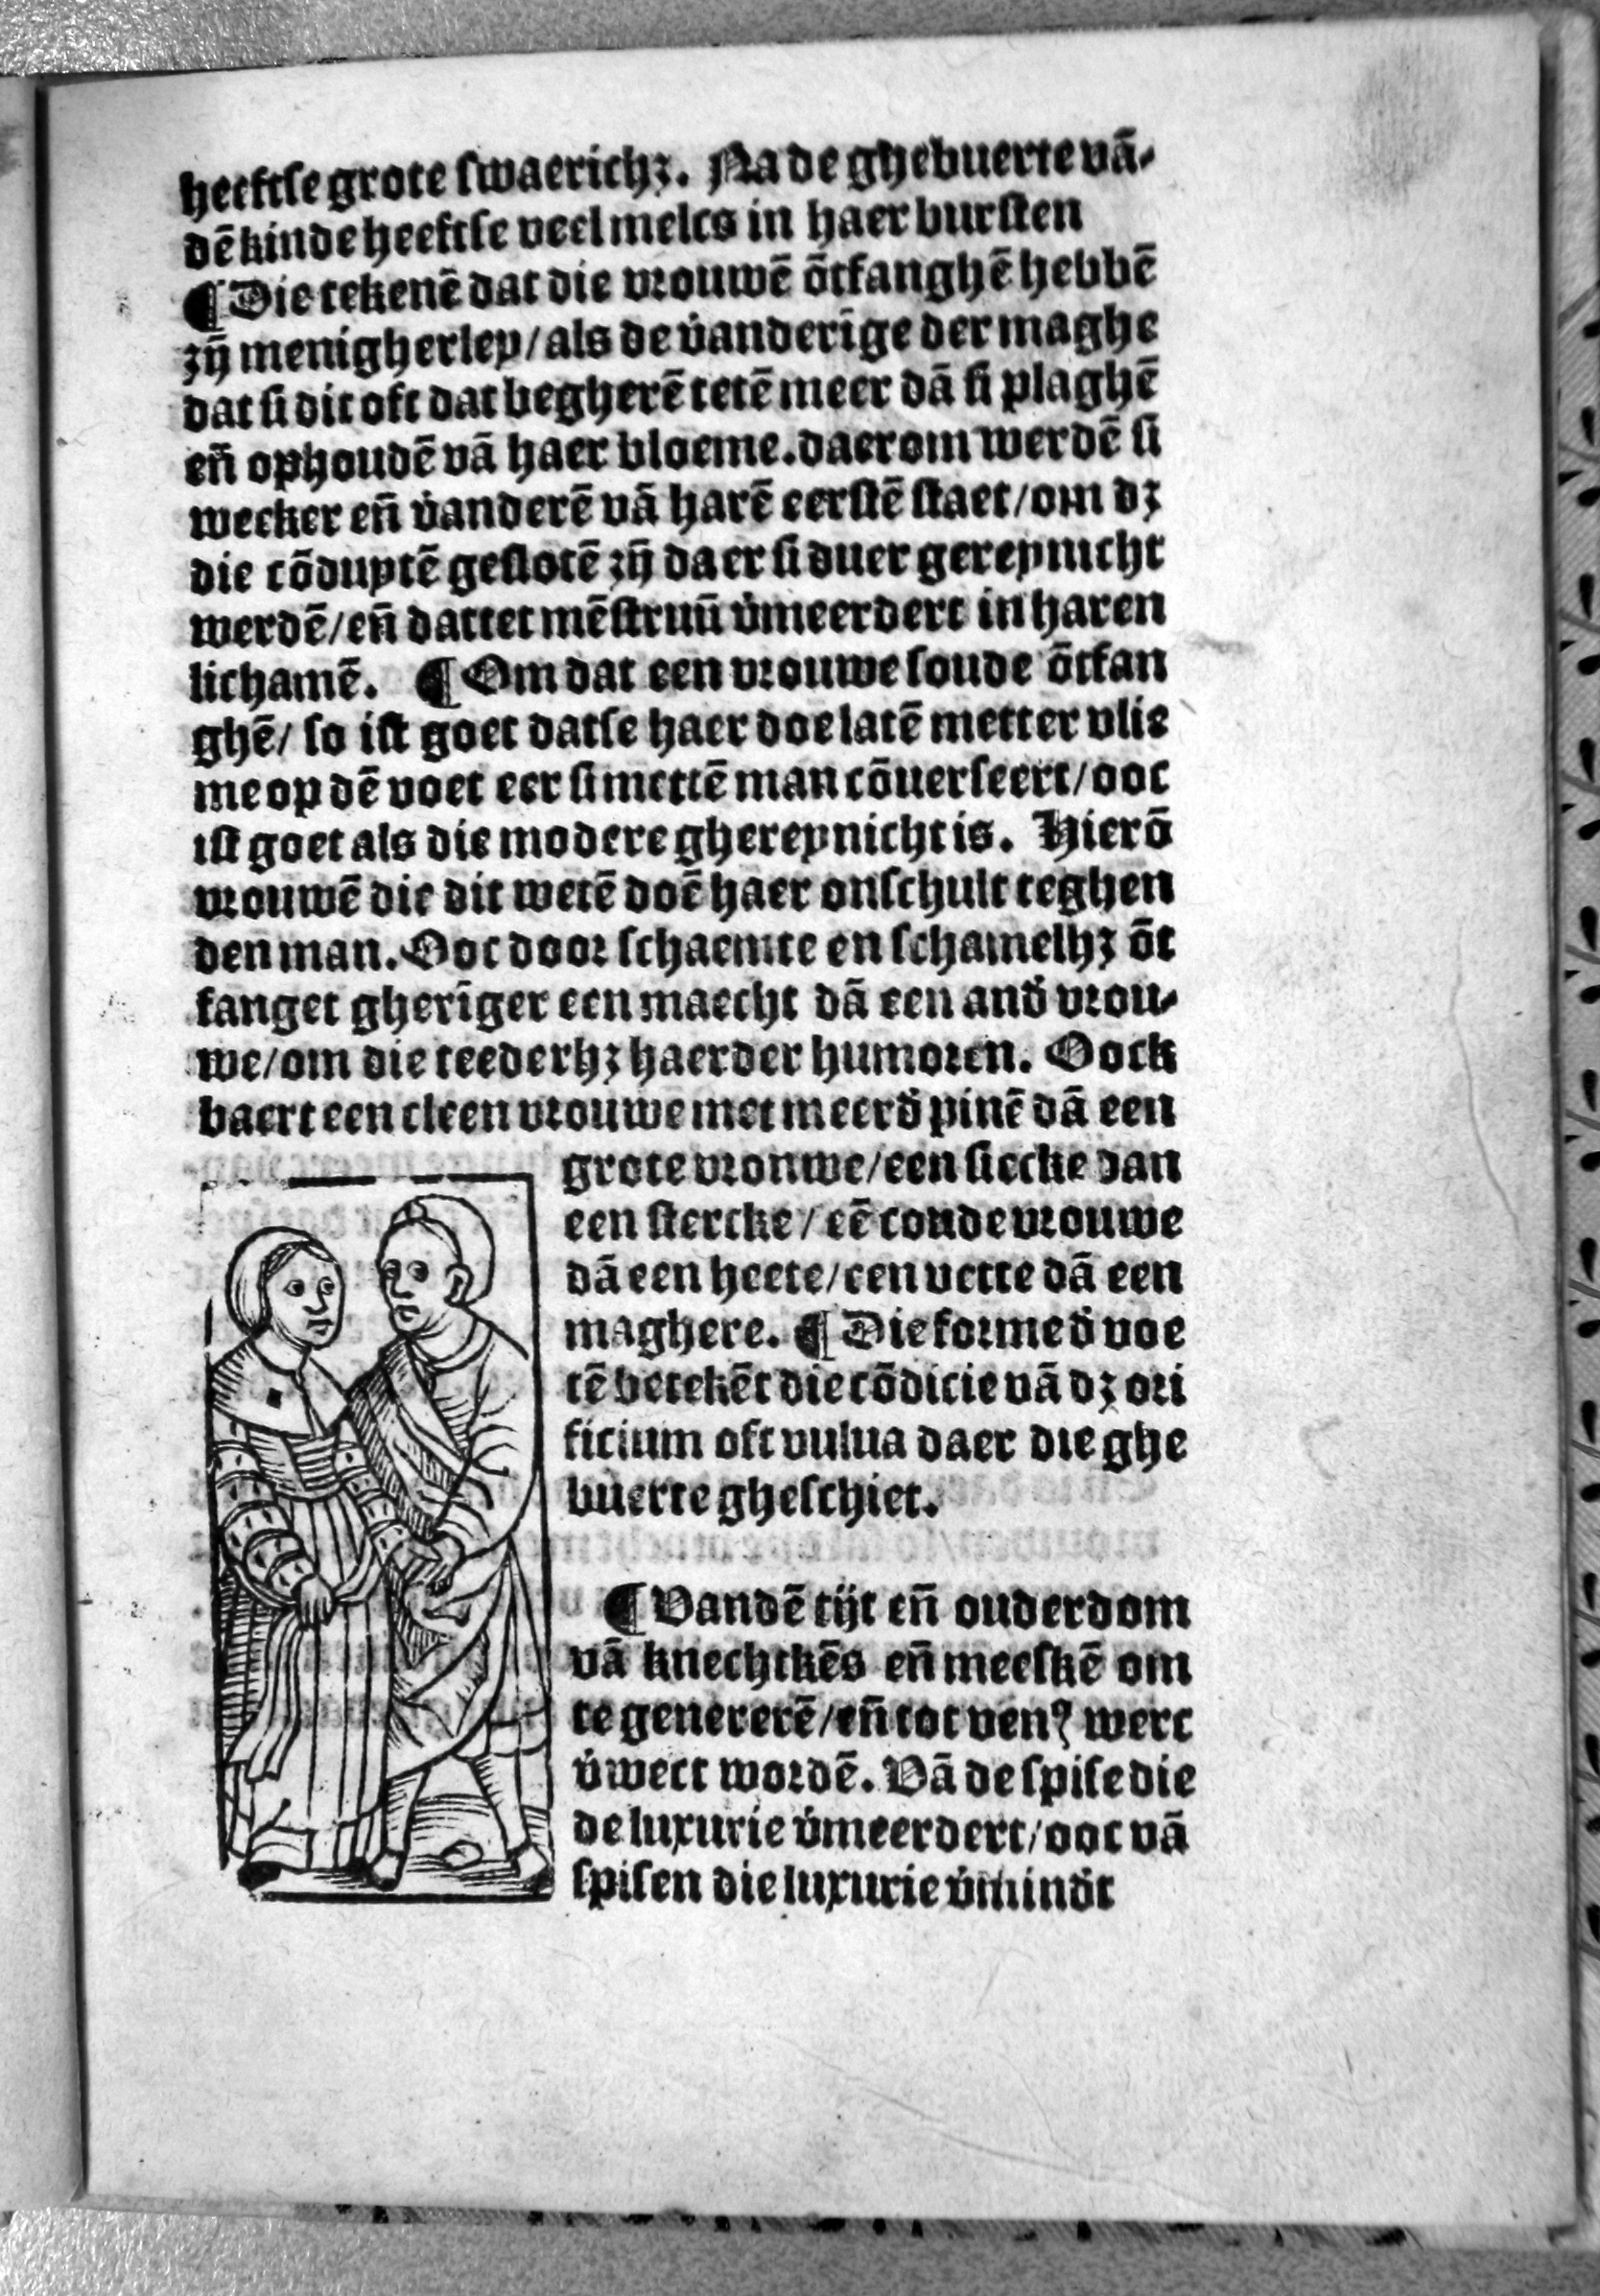 heeftse grote swaerichꝫ. Na de ghebuerte vā-
dē kinde heeftse veel melcs in haer bursten
¶ Die tekenē dat die vrouwē ōtfanghē hebbē
zȳ menigherley/als de v̄anderīge der maghe
dat si dit oft dat begherē tetē meer dā si plaghē
en̄ ophoudē vā haer bloeme. daerom werdē si
wecker en̄ v̄anderē vā harē eerstē staet/om dꝫ
die cōduytē geslotē zȳ daer si duer gereynicht
werdē/en̄ dattet mēstruū v̄meerdert in haren
lichamē. ¶ Om dat een vrouwe soude ōtfan
ghē/ so ist goet datse haer doe latē metter vlie
me op dē voet eer si mettē man cōuerseert/ooc
ist goet als die modere ghereynicht is. Hierō
vrouwē die dit wetē doē haer onschult teghen
den man. Ooc door schaemte en schamelhꝫ ōt
fanget gherīger een maecht dā een and̄ vrou-
we/om die teederhꝫ haerder humoren. Oock
baert een cleen vrouwe met meerd̄ pinē dā een
grote vronwe/een siecke dan
een stercke/eē coude vrouwe
dā een heete/een vette dā een
maghere. ¶ Die forme d̄ voe
tē betekēt die cōdicie vā dꝫ ori
ficium oft vulua daer die ghe
buerte gheschiet.
¶ Vandē tijt en̄ ouderdom
vā knechtkēs en̄ meeskē om
te genererē/en̄ tot venꝰ wert
v̄wect wordē. Vā de spise die
de luxurie v̄meerdert/ooc vā
spisen die luxurie v̄mind̄t